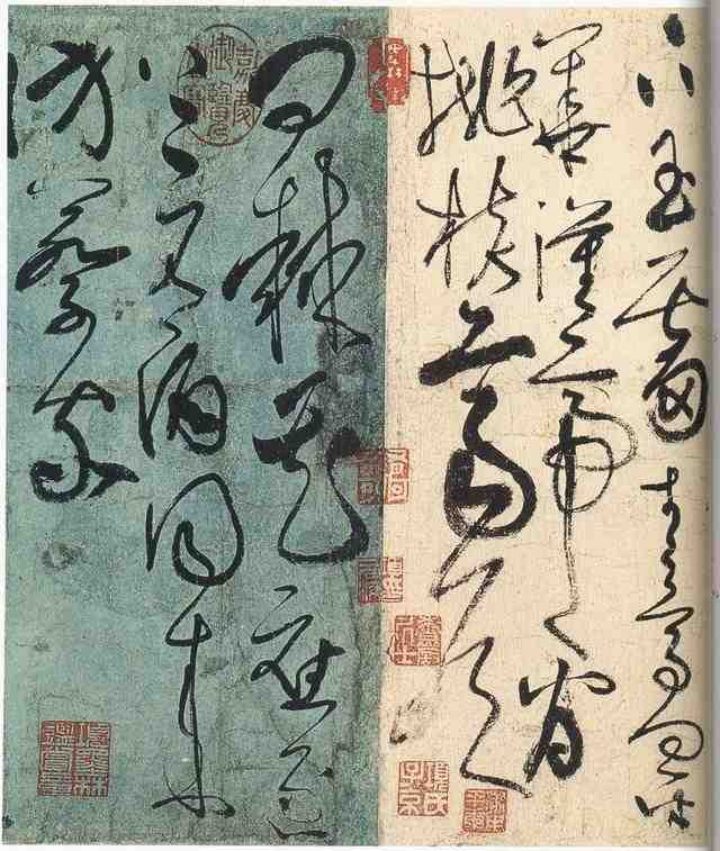 下玉霤青鳥向金
華漢帝看
桃核齊侯
問棘花應逐
上元酒同来
訪蔡家